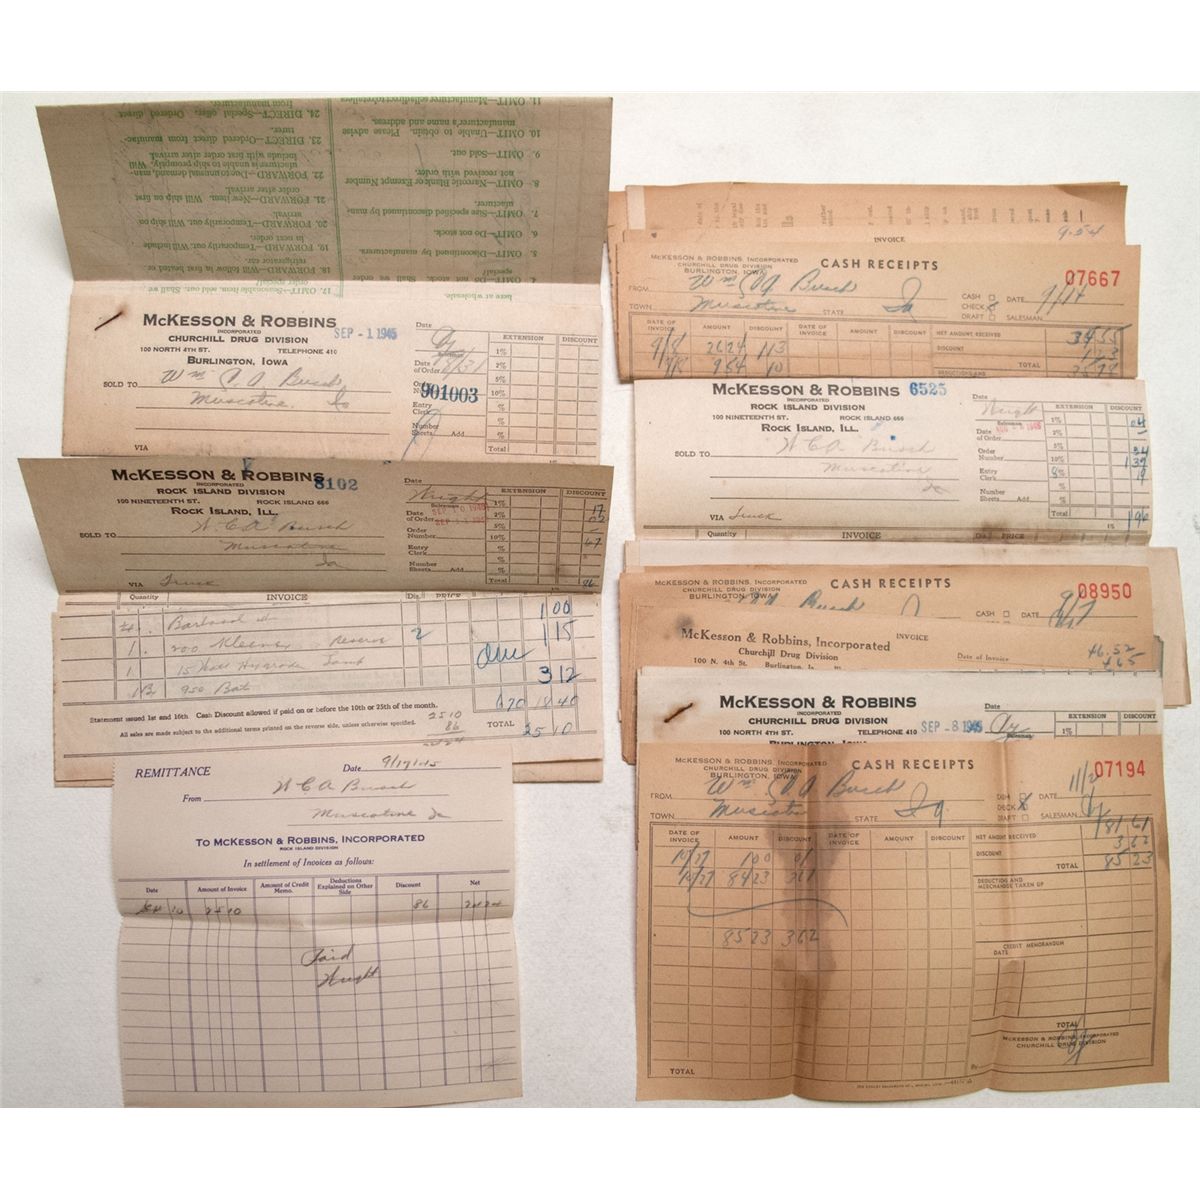 11. OMIT—Manufacturer sells direct to retailers
10. OMIT—Unable to obtain. Please advise
manufacturer's name and address.
9. OMIT—Sold out.
8. OMIT—Narcotic Blank or Exempt Number
not received with order.
7. OMIT—Size specified discontinued by man-
ufacturer.
6. OMIT—Do not stock.
5. OMIT—Discontinued by manufacturers.
24. DIRECT—Special offer. Ordered Direct
from manufacturer.
23. DIRECT—Ordered direct from manufac-
turer.
22. FORWARD—Due to unusual demand, man-
ufacturer is unable to ship promptly. Will
include with first order after arrival.
21. FORWARD—New Item. Will ship on first
order after arrival.
20. FORWARD—Temporarily out. Will ship on
arrival.
19. FORWARD—Temporarily out. Will include
in next order.
18. FORWARD—Will follow in first heated or
refrigerator car.
McKESSON & ROBBINS
INCORPORATED
CHURCHILL DRUG DIVISION
100 NORTH 4TH ST. TELEPHONE 410
BURLINGTON, IOWA
SEP - 1 1945
SOLD TO Wm C. A. Busch
Muscatine Ia
VIA
Date
Salesman
Date of Order 8/31
Order Number 901003
Entry Clerk
Number Sheets Add.
EXTENSION DISCOUNT
1%
2%
5%
10%
%
%
Total
McKESSON & ROBBINS 8102
INCORPORATED
ROCK ISLAND DIVISION
100 NINETEENTH ST. ROCK ISLAND 666
ROCK ISLAND, ILL.
SOLD TO W C A Busch
Muscatine
Ia
VIA Truck
Date Wright
Salesman
Date of Order SEP 10 1945
Order Number
Entry Clerk
Number Sheets Add.
EXTENSION DISCOUNT
1% 17
2% 02
5%
10% 67
%
%
Total 86
Quantity INVOICE Dis. PRICE
1 00
1. 200 Kleenex Reserve 2 1 15
1 15 Watt Hygrade Lamp 3 12
950 Bat
6 70 18 40
Statement issued 1st and 16th Cash Discount allowed if paid on or before the 10th or 25th of the month.
All sales are made subject to the additional terms printed on the reverse side, unless otherwise specified.
TOTAL 25 10
25 10
86
24 24
REMITTANCE Date 9/17/45
From W C A Busch
Muscatine Ia
TO McKESSON & ROBBINS, INCORPORATED
ROCK ISLAND DIVISION
In settlement of Invoices as follows:
Date Amount of Invoice Amount of Credit Memo. Deductions Explained on Other Side Discount Net
10 25 10 86 24 24
Paid
Wright
9.54
INVOICE
McKESSON & ROBBINS, INCORPORATED
CHURCHILL DRUG DIVISION
BURLINGTON, IOWA
CASH RECEIPTS
07667
FROM Wm C A Busch
TOWN Muscatine STATE Ia
CASH
CHECK X
DRAFT
DATE 9/14
SALESMAN
DATE OF INVOICE AMOUNT DISCOUNT DATE OF INVOICE AMOUNT DISCOUNT
9/8 26 24 1 13
9/8 9 54 10
NET AMOUNT RECEIVED 34 55
DISCOUNT 1 23
TOTAL 35 78
DEDUCTIONS AND
McKESSON & ROBBINS 6525
INCORPORATED
ROCK ISLAND DIVISION
100 NINETEENTH ST. ROCK ISLAND 666
ROCK ISLAND, ILL.
SOLD TO W C A Busch
Muscatine
Ia
VIA Truck
Date Wright
Salesman
Date of Order
Order Number
Entry Clerk
Number Sheets Add.
EXTENSION DISCOUNT
1% 04
2%
5%
10% 1 39
8% 19
%
Total 1 96
Quantity INVOICE Dis. PRICE
McKESSON & ROBBINS, INCORPORATED
CHURCHILL DRUG DIVISION
BURLINGTON, IOWA
CASH RECEIPTS
08950
Busch
CASH
DATE 9/7
McKesson & Robbins, Incorporated
Churchill Drug Division
100 N. 4th St. Burlington, Ia.
INVOICE
Date of Invoice
46.52
McKESSON & ROBBINS
INCORPORATED
CHURCHILL DRUG DIVISION
100 NORTH 4TH ST. TELEPHONE 410
BURLINGTON, IOWA
SEP - 8 1945
Date
Salesman
EXTENSION DISCOUNT
1%
McKESSON & ROBBINS, INCORPORATED
CHURCHILL DRUG DIVISION
BURLINGTON, IOWA
CASH RECEIPTS
07194
FROM Wm C A Busch
TOWN Muscatine STATE Ia.
CHECK X
DRAFT
DATE 11/2
SALESMAN
DATE OF INVOICE AMOUNT DISCOUNT DATE OF INVOICE AMOUNT DISCOUNT
10/27 1 00 01
10/27 84 23 3 61
85 23 3 62
NET AMOUNT RECEIVED 81 61
DISCOUNT 3 62
TOTAL 85 23
DEDUCTION AND
MERCHANDISE TAKEN UP
CREDIT MEMORANDUM
DATE
TOTAL
McKESSON & ROBBINS, INCORPORATED
CHURCHILL DRUG DIVISION
By
TOTAL